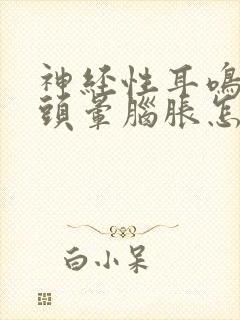 神經性耳鳴
頭暈腦脹怎
白小呆